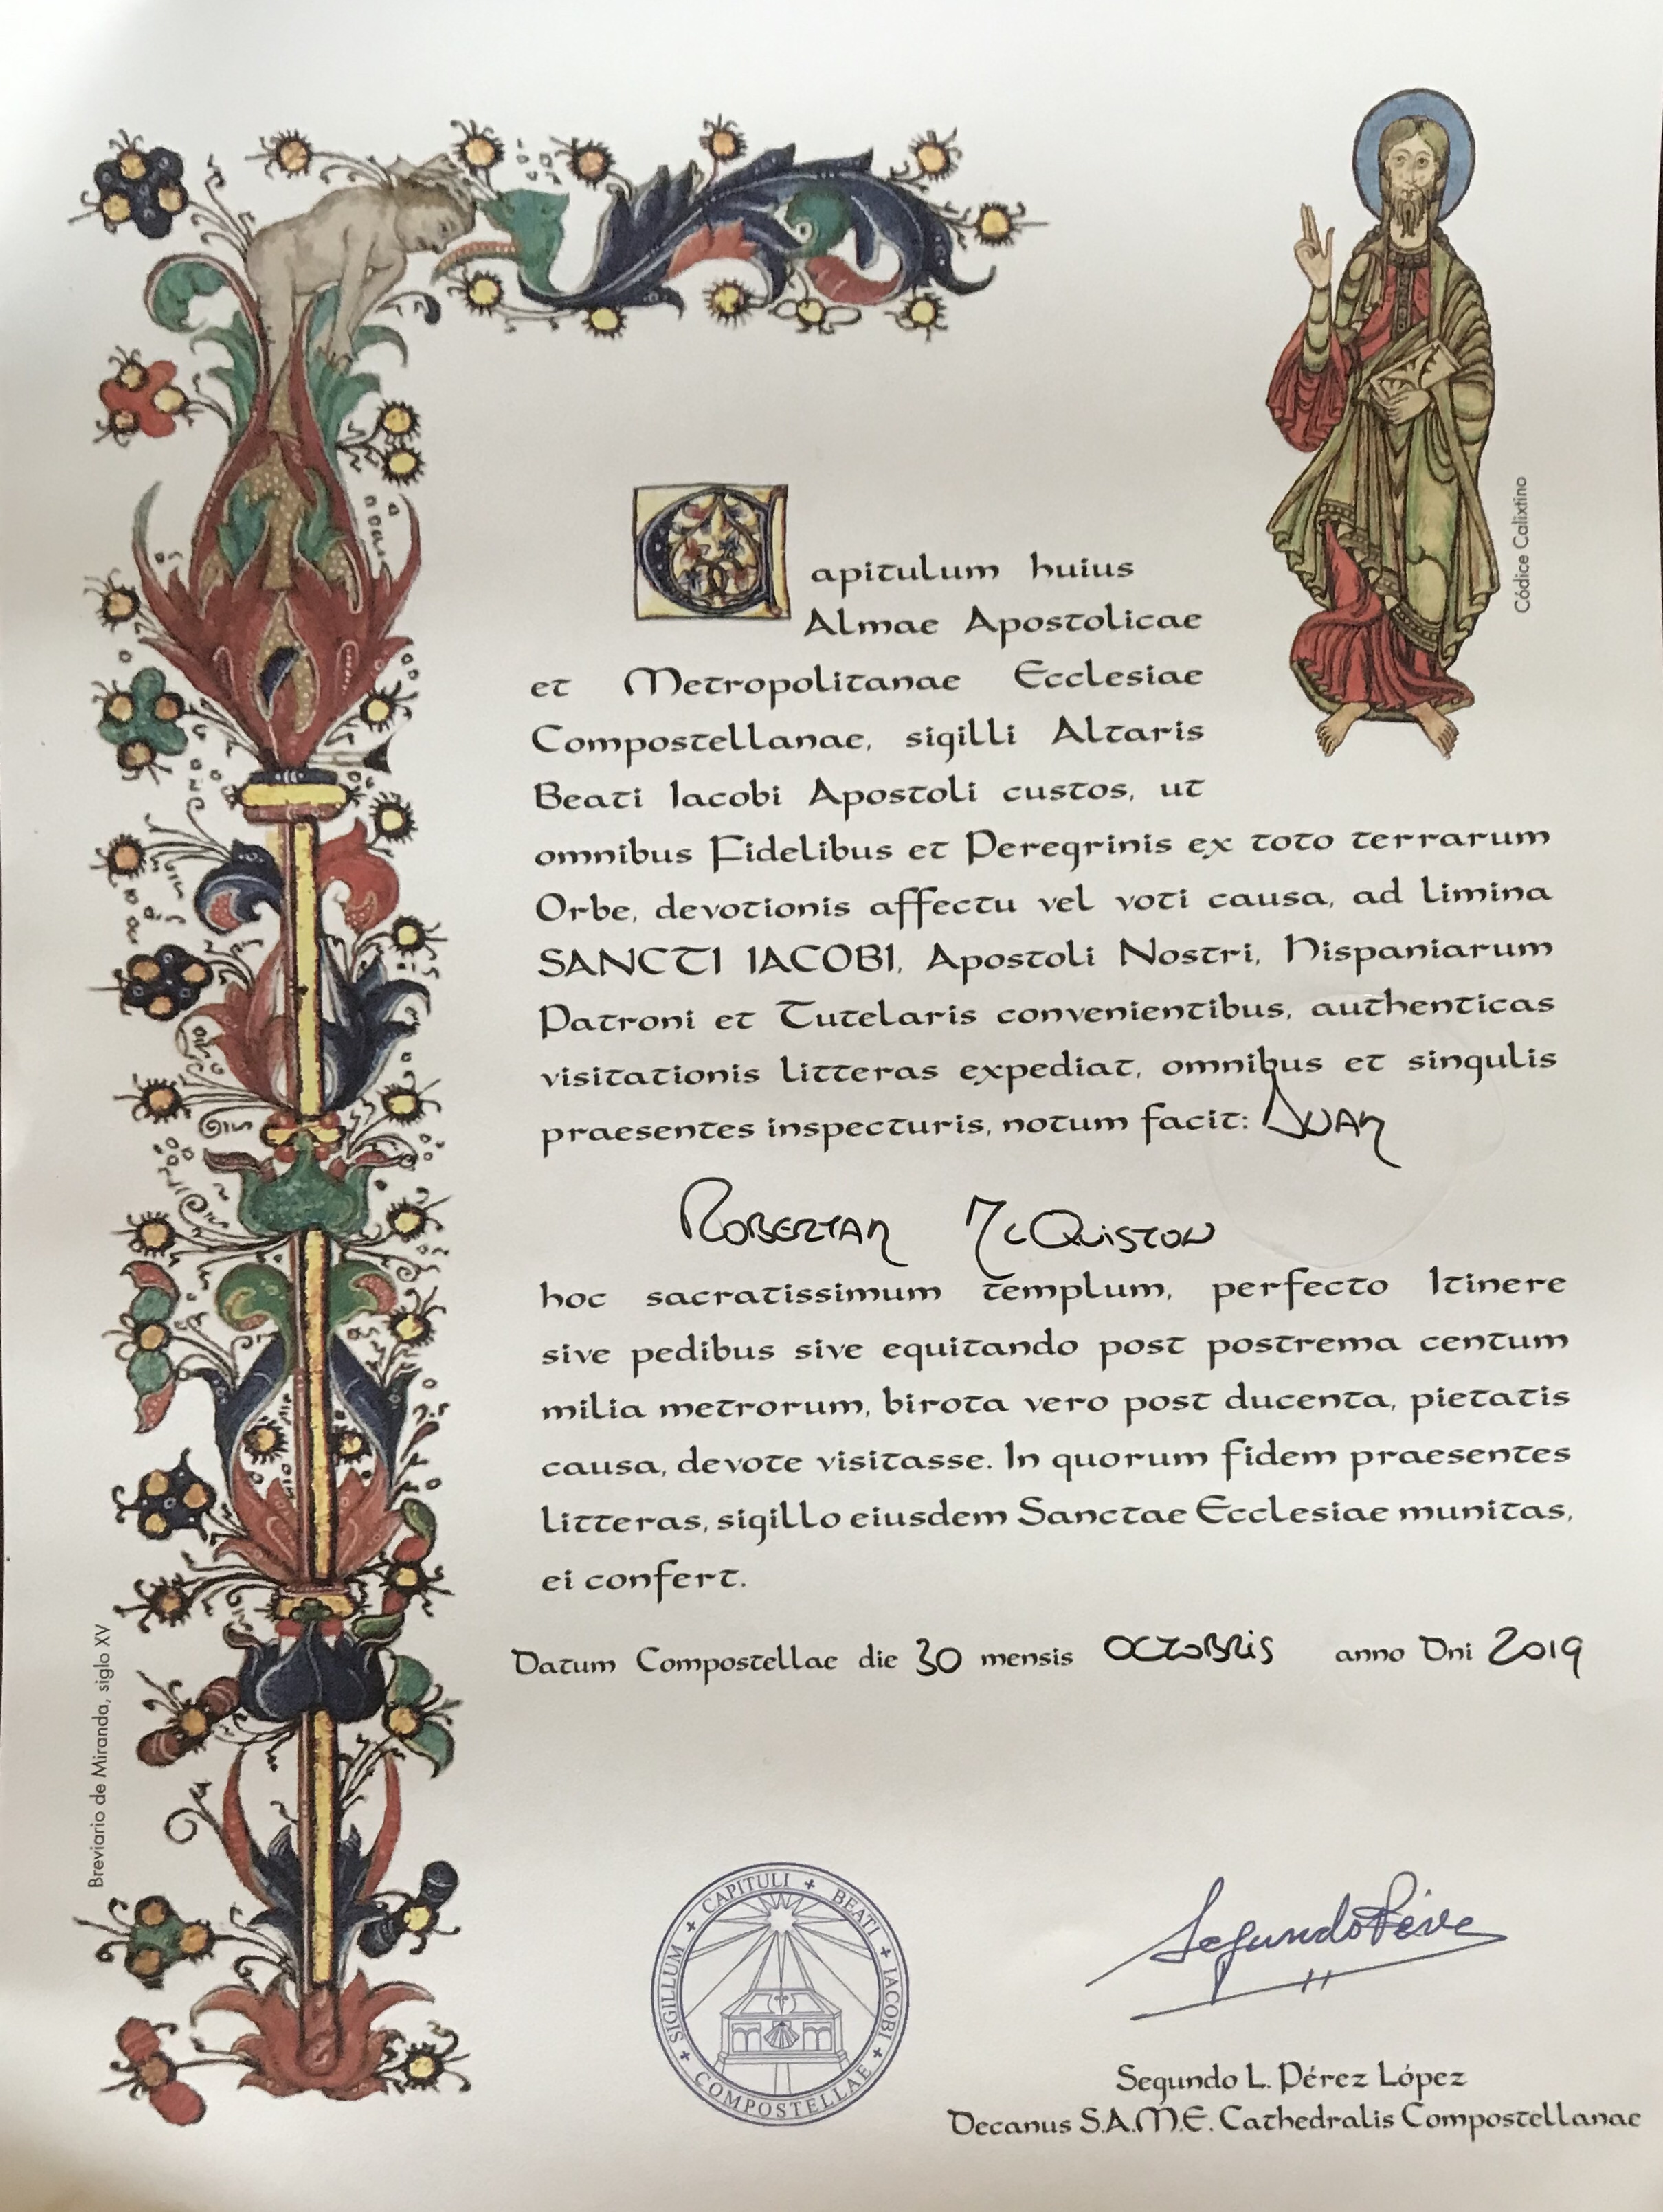 Capitulum huius
Almae Apostolicae
et Metropolitanae Ecclesiae
Compostellanae, sigilli Altaris
Beati Iacobi Apostoli custos, ut
omnibus Fidelibus et Peregrinis ex toto terrarum
Orbe, devotionis affectu vel voti causa, ad limina
SANCTI IACOBI, Apostoli Nostri, Hispaniarum
Patroni et Tutelaris convenientibus, authenticas
visitationis litteras expediat, omnibus et singulis
praesentes inspecturis, notum facit: DUAN
ROBERTAN McQUISTON
hoc sacratissimum templum, perfecto Itinere
sive pedibus sive equitando post postrema centum
milia metrorum, birota vero post ducenta, pietatis
causa, devote visitasse. In quorum fidem praesentes
litteras, sigillo eiusdem Sanctae Ecclesiae munitas,
ei confert.
Datum Compostellae die 30 mensis OCTOBRIS anno Dni 2019
Códice Calixtino
Breviario de Miranda, siglo XV
SIGILLUM + CAPITULI + BEATI + IACOBI + COMPOSTELLAE +
Segundo Pérez
Segundo L. Pérez López
Decanus S.A.M.E. Cathedralis Compostellanae